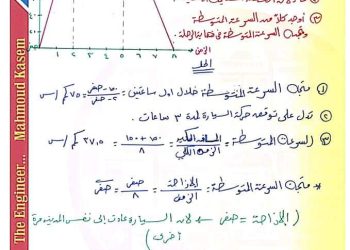 ٢) ...
٣) أوجد كلاً من السرعة المتوسطة
ومتجه السرعة المتوسطة في نهاية الرحلة.
الزمن
الحل
١) متجه السرعة المتوسطة خلال أول ساعتين =
٢) تدل على توقف حركة السيارة لمدة ٣ ساعات.
٣) السرعة المتوسطة = المسافة الكلية / الزمن الكلي = ١٥٠+١٥٠ / ٨ = ٣٧,٥ كم/س
* متجه السرعة المتوسطة = الإزاحة / الزمن = صفر / ٨ = صفر
(الإزاحة = صفر ← لأن السيارة عادت إلى نفس المدينة مرة
أخرى)
The Engineer... Mahmoud Kasem